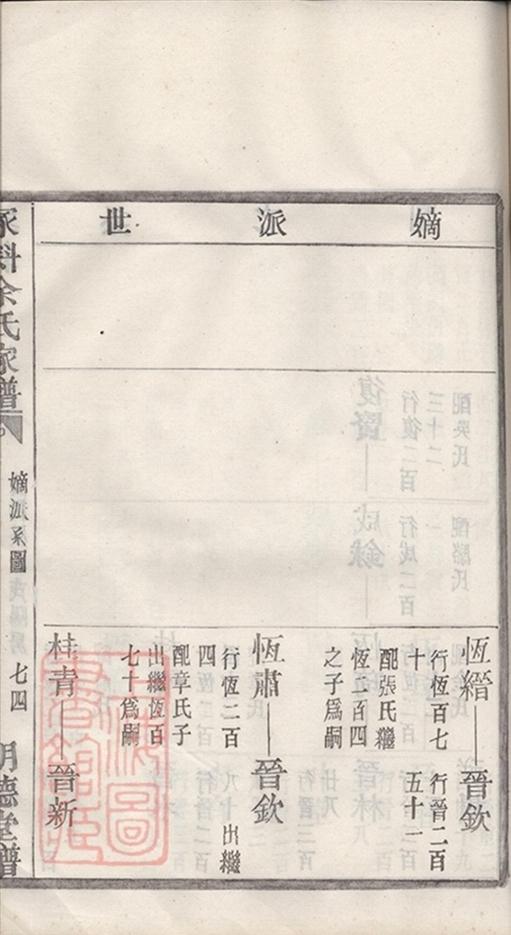 嫡派世
恆縉—晉欽
行恆百七
十
行晉二百
五十一
配張氏繼
恆二百四
之子為嗣
恆肅—晉欽
行恆二百
四
八十 出繼
配章氏子
出繼恆百
七十為嗣
桂青—晉新
余氏家譜
嫡派系圖
七四
明德堂譜